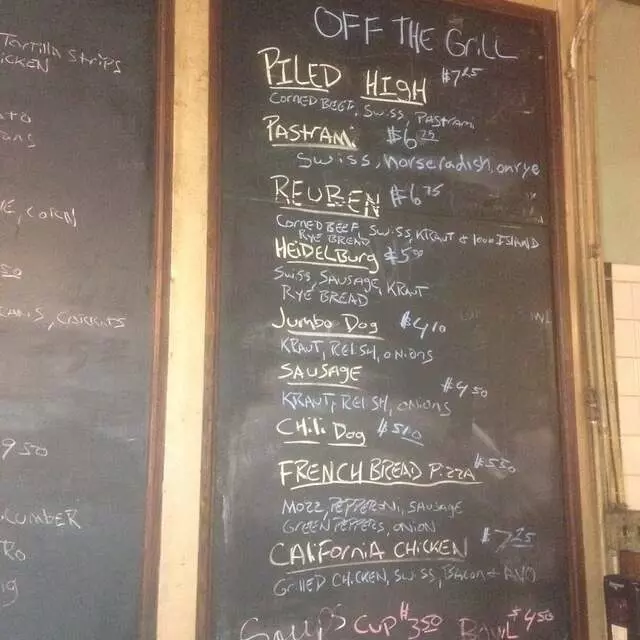 Tortilla Strips
ICKEN
E, CORN
50
9 50
CUMBER
RO
OFF THE GRILL
PILED HIGH $7 25
CORNED BEEF, SWISS, PASTRAMI
PASTRAMI $6 25
SWISS, horseradish, on rye
REUBEN $6 75
CORNED BEEF, SWISS, KRAUT & 1000 ISLAND
RYE BREAD
HEIDELBURG $5 00
SWISS, SAUSAGE, KRAUT
RYE BREAD
JUMBO DOG $4 10
KRAUT, RELISH, ONIONS
SAUSAGE $4 50
KRAUT, RELISH, ONIONS
CHILI DOG $5 10
FRENCH BREAD PIZZA $5 50
MOZZ, PEPPERONI, SAUSAGE
GREEN PEPPERS, ONION
CALIFORNIA CHICKEN $7 25
GRILLED CHICKEN, SWISS, BACON & AVO
SOUPS CUP $3 50 BOWL $4 50